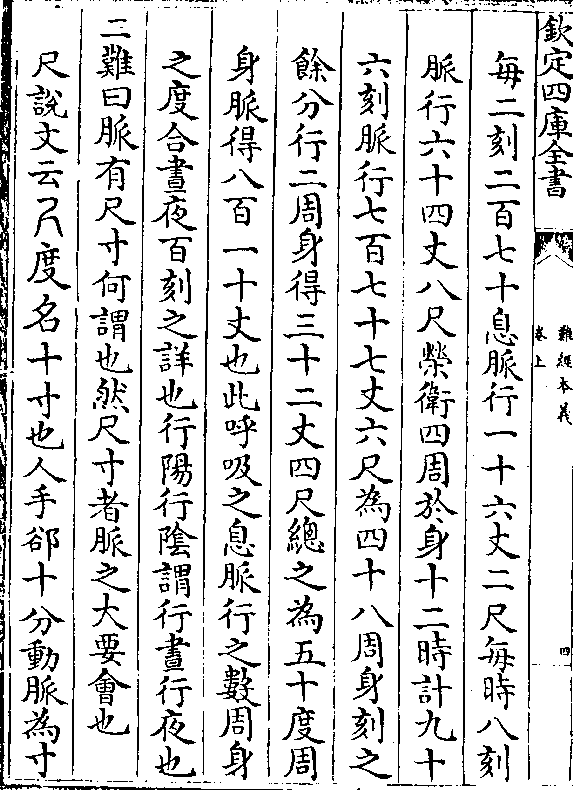 欽定四庫全書
難經本義
卷上
四
每二刻二百七十息脈行一十六丈二尺每時八刻
脈行六十四丈八尺榮衛四周於身十二時計九十
六刻脈行七百七十七丈六尺為四十八周身刻之
餘分行二周身得三十二丈四尺總之為五十度周
身脈得八百一十丈也此呼吸之息脈行之數周身
之度合晝夜百刻之詳也行陽行隂謂行晝行夜也
二難曰脈有尺寸何謂也然尺寸者脈之大要會也
尺說文云尺度名十寸也人手郤十分動脈為寸